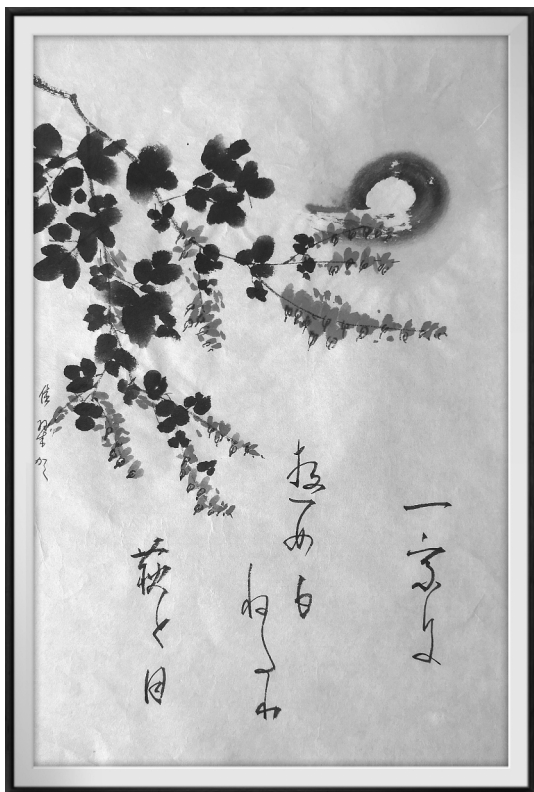 一家に
遊女も
ねたり
萩と月